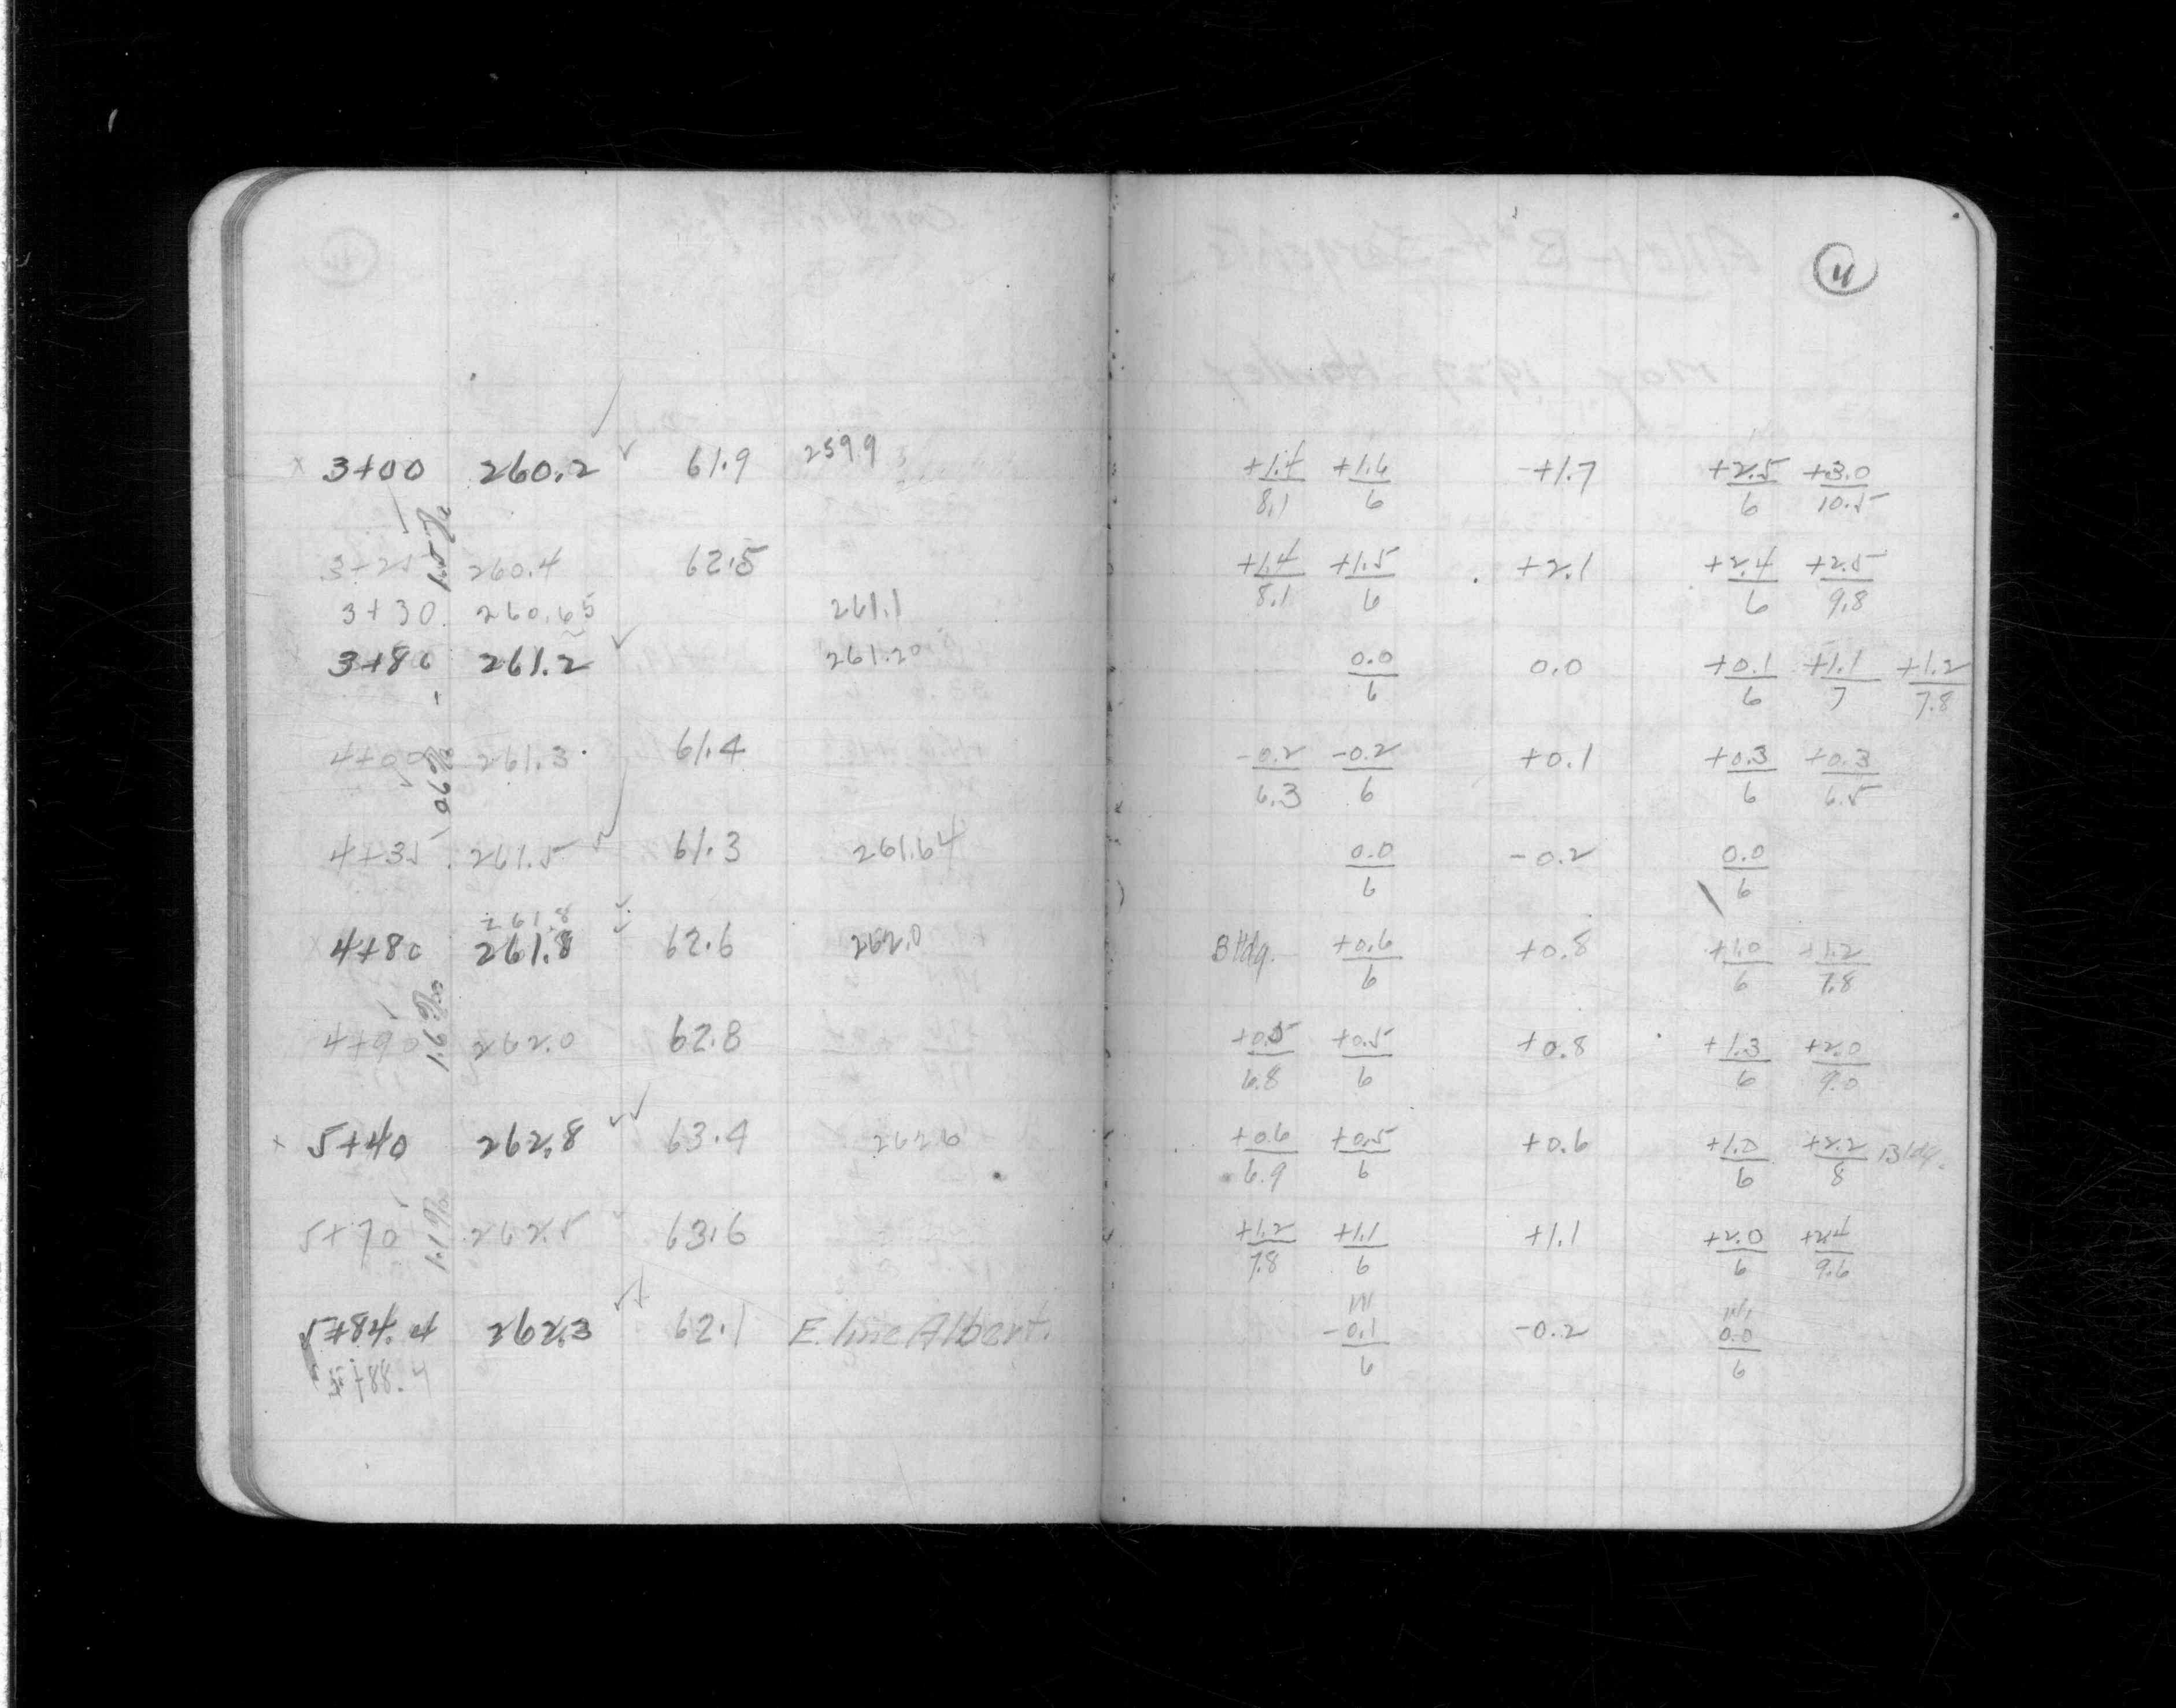 4
3+00 260.2 ✓ 61.9 259.9 +1.4/8.1 +1.6/6 +1.7 +2.5/6 +3.0/10.5
1.5%
3+25 260.4 62.5 +1.4/8.1 +1.5/6 +2.1 +2.4/6 +2.5/9.8
3+30 260.65 261.1
3+80 261.2 ✓ 261.20 0.0/6 0.0 +0.1/6 +1.1/7 +1.2/7.8
4+00 261.3 61.4 -0.2/6.3 -0.2/6 +0.1 +0.3/6 +0.3/6.5
4+35 261.5 ✓ 61.3 261.64 0.0/6 -0.2 0.0/6
261.8
4+80 261.8 62.6 262.0 Bldg. +0.6/6 +0.8 +1.0/6 +1.2/7.8
1.6%
4+90 262.0 62.8 +0.5/6.8 +0.5/6 +0.8 +1.3/6 +2.0/9.0
x 5+40 262.8 ✓✓ 63.4 262.6 +0.6/6.9 +0.5/6 +0.6 +1.0/6 +2.2/8 Bldg.
1.1%
5+70 262.5 63.6 +1.2/7.8 +1.1/6 +1.1 +2.0/6 +2.4/9.6
5+84.4 262.3 62.1 E. line Albert. -0.1/6 -0.2 0.0/6
+88.4